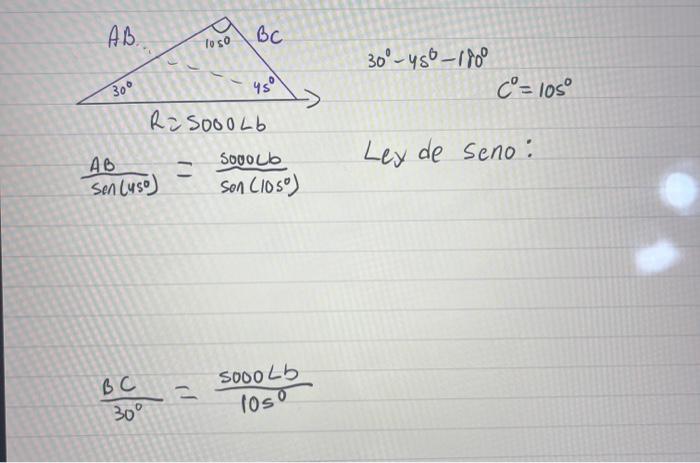 AB
105°
BC
30°
45°
30° - 45° - 180°
C° = 105°
R = 5000Lb
Ley de seno:
AB / Sen(45°) = 5000Lb / Sen(105°)
BC / 30° = 5000Lb / 105°